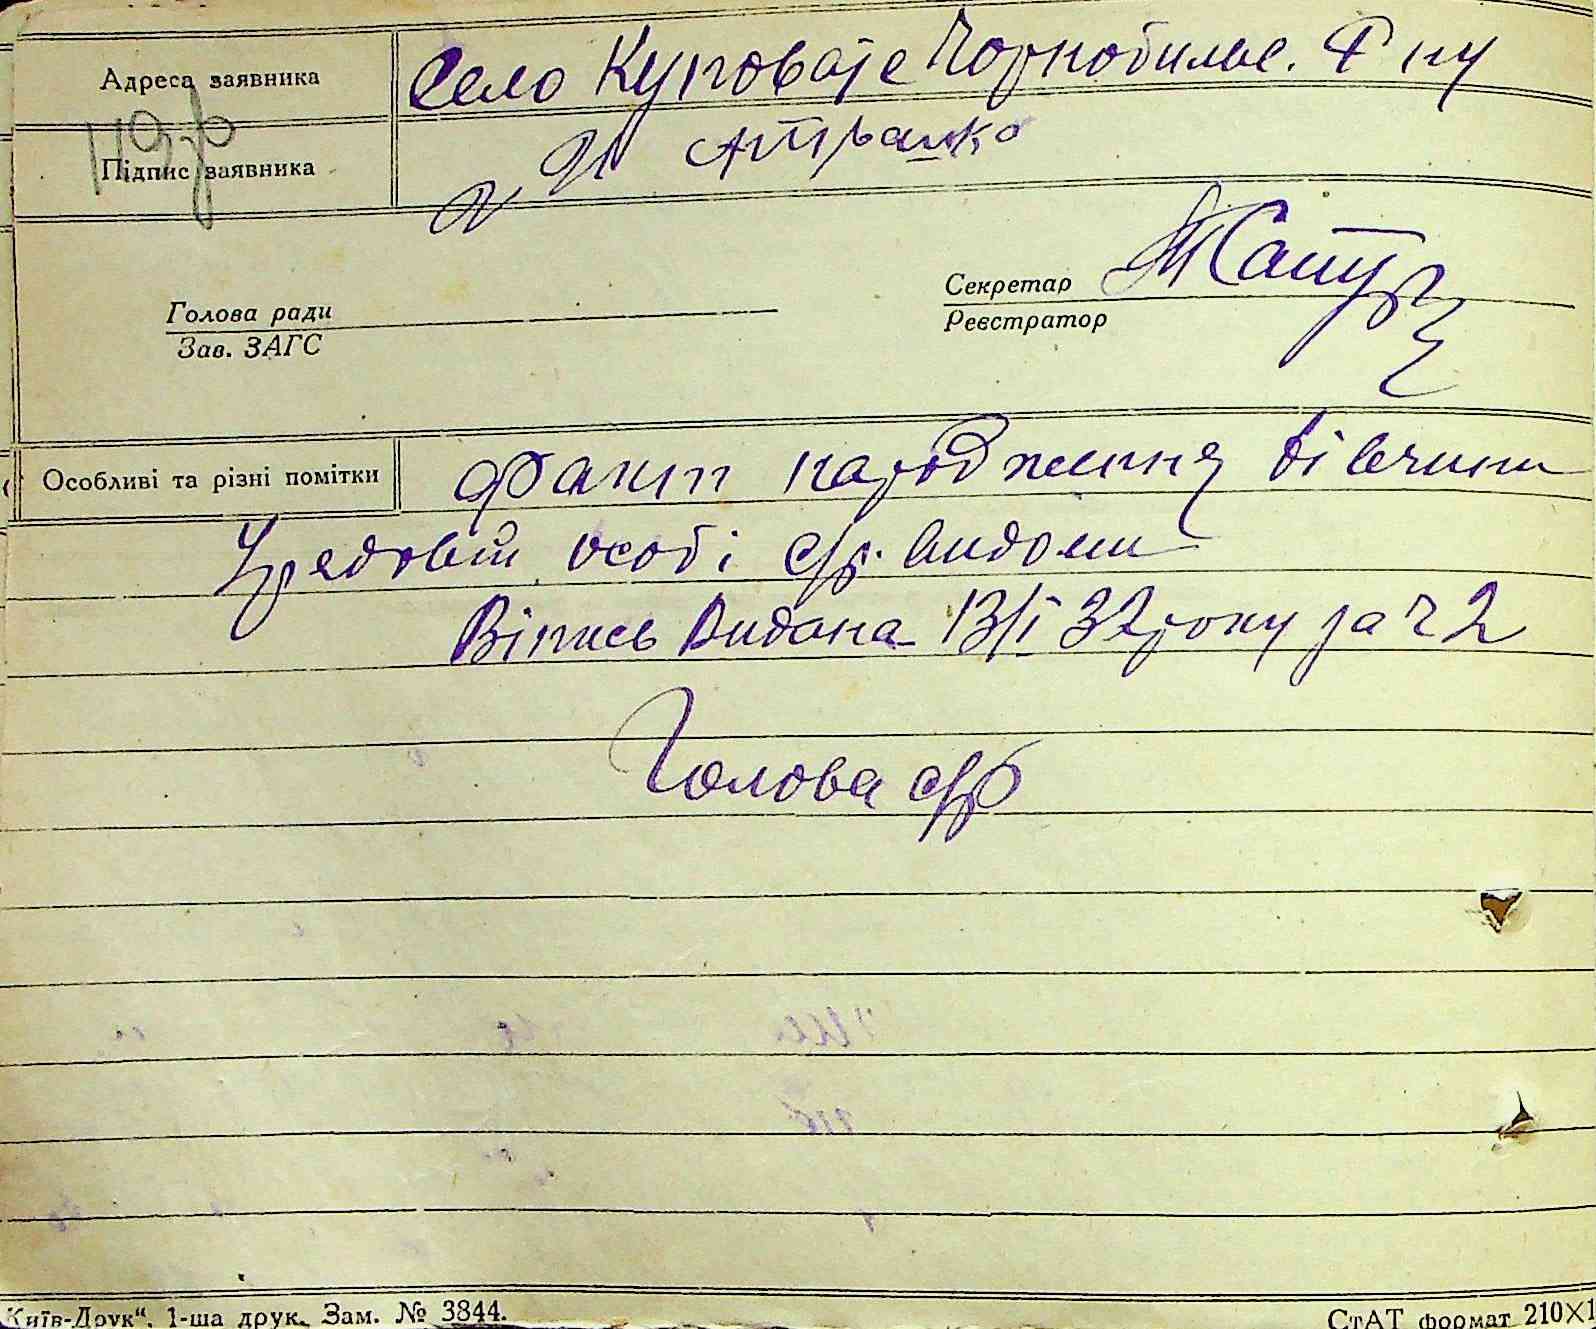 Адреса заявника
Село Куповате Чорнобильс. Р ну
Підпис заявника
Секретар
Реєстратор
Голова ради
Зав. ЗАГС
Особливі та різні помітки
Факт народження дівчини
Урядовій особі с/р. видоми
Віпись Видана 13/І 32 року за ч 2
Голова с/р
Київ-Друк“, 1-ша друк. Зам. № 3844.
СтАТ формат 210×1